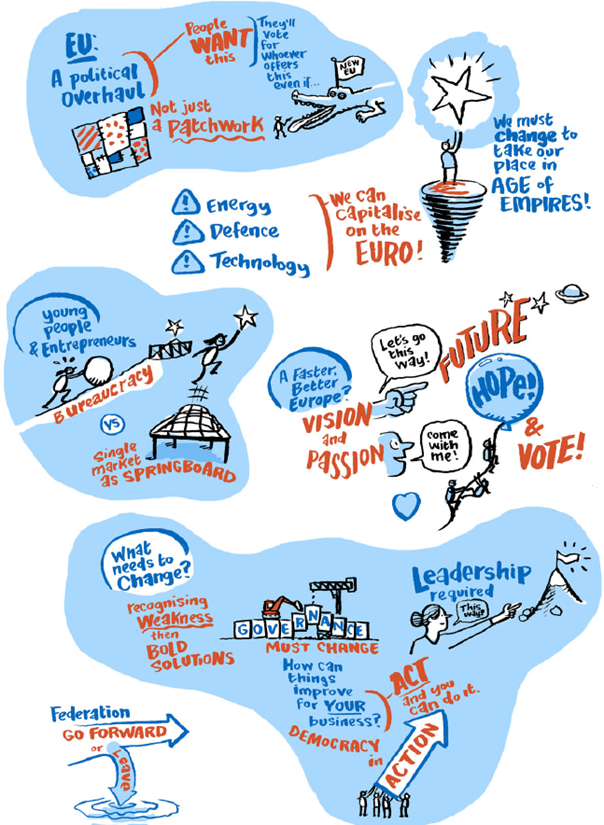 EU:
A political
Overhaul
People
WANT
this
They'll
Vote
for
Whoever
offers
this
even if...
NEW
EU
Not just
a PATCHWORK
We must
change to
take our
place in
AGE of
EMPIRES!
! Energy
! Defence
! Technology
We can
Capitalise
on the
EURO!
Young
People
& Entrepreneurs
Bureaucracy
VS
Single
market
as SPRINGBOARD
A Faster,
Better
Europe?
VISION
and
PASSION
Let's go
this
way!
FUTURE
come
with
me!
HOPE!
&
VOTE!
What
needs to
Change?
recognising
Weakness
then
BOLD
SOLUTIONS
GOVERNANCE
MUST CHANGE
Leadership
required
This
way!
How can
things
improve
for YOUR
business?
ACT
and you
can do it.
DEMOCRACY
in
ACTION
Federation
GO FORWARD
or
Leave